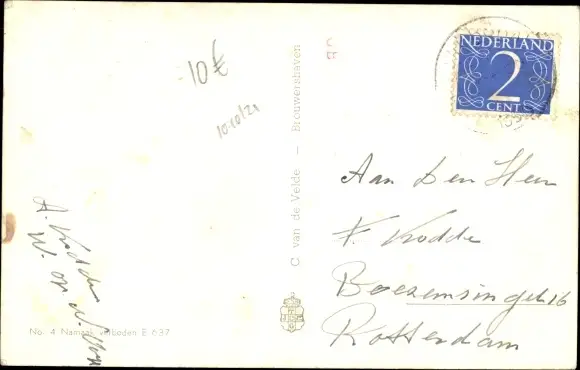 NEDERLAND
2
CENT
-10€
10.10/21
C van de Velde – Brouwershaven
Aan Den Heer
F. Kodde
Boezemsingel 16
Rotterdam
A. Kodde
W. op
No. 4 Namaak verboden E 637